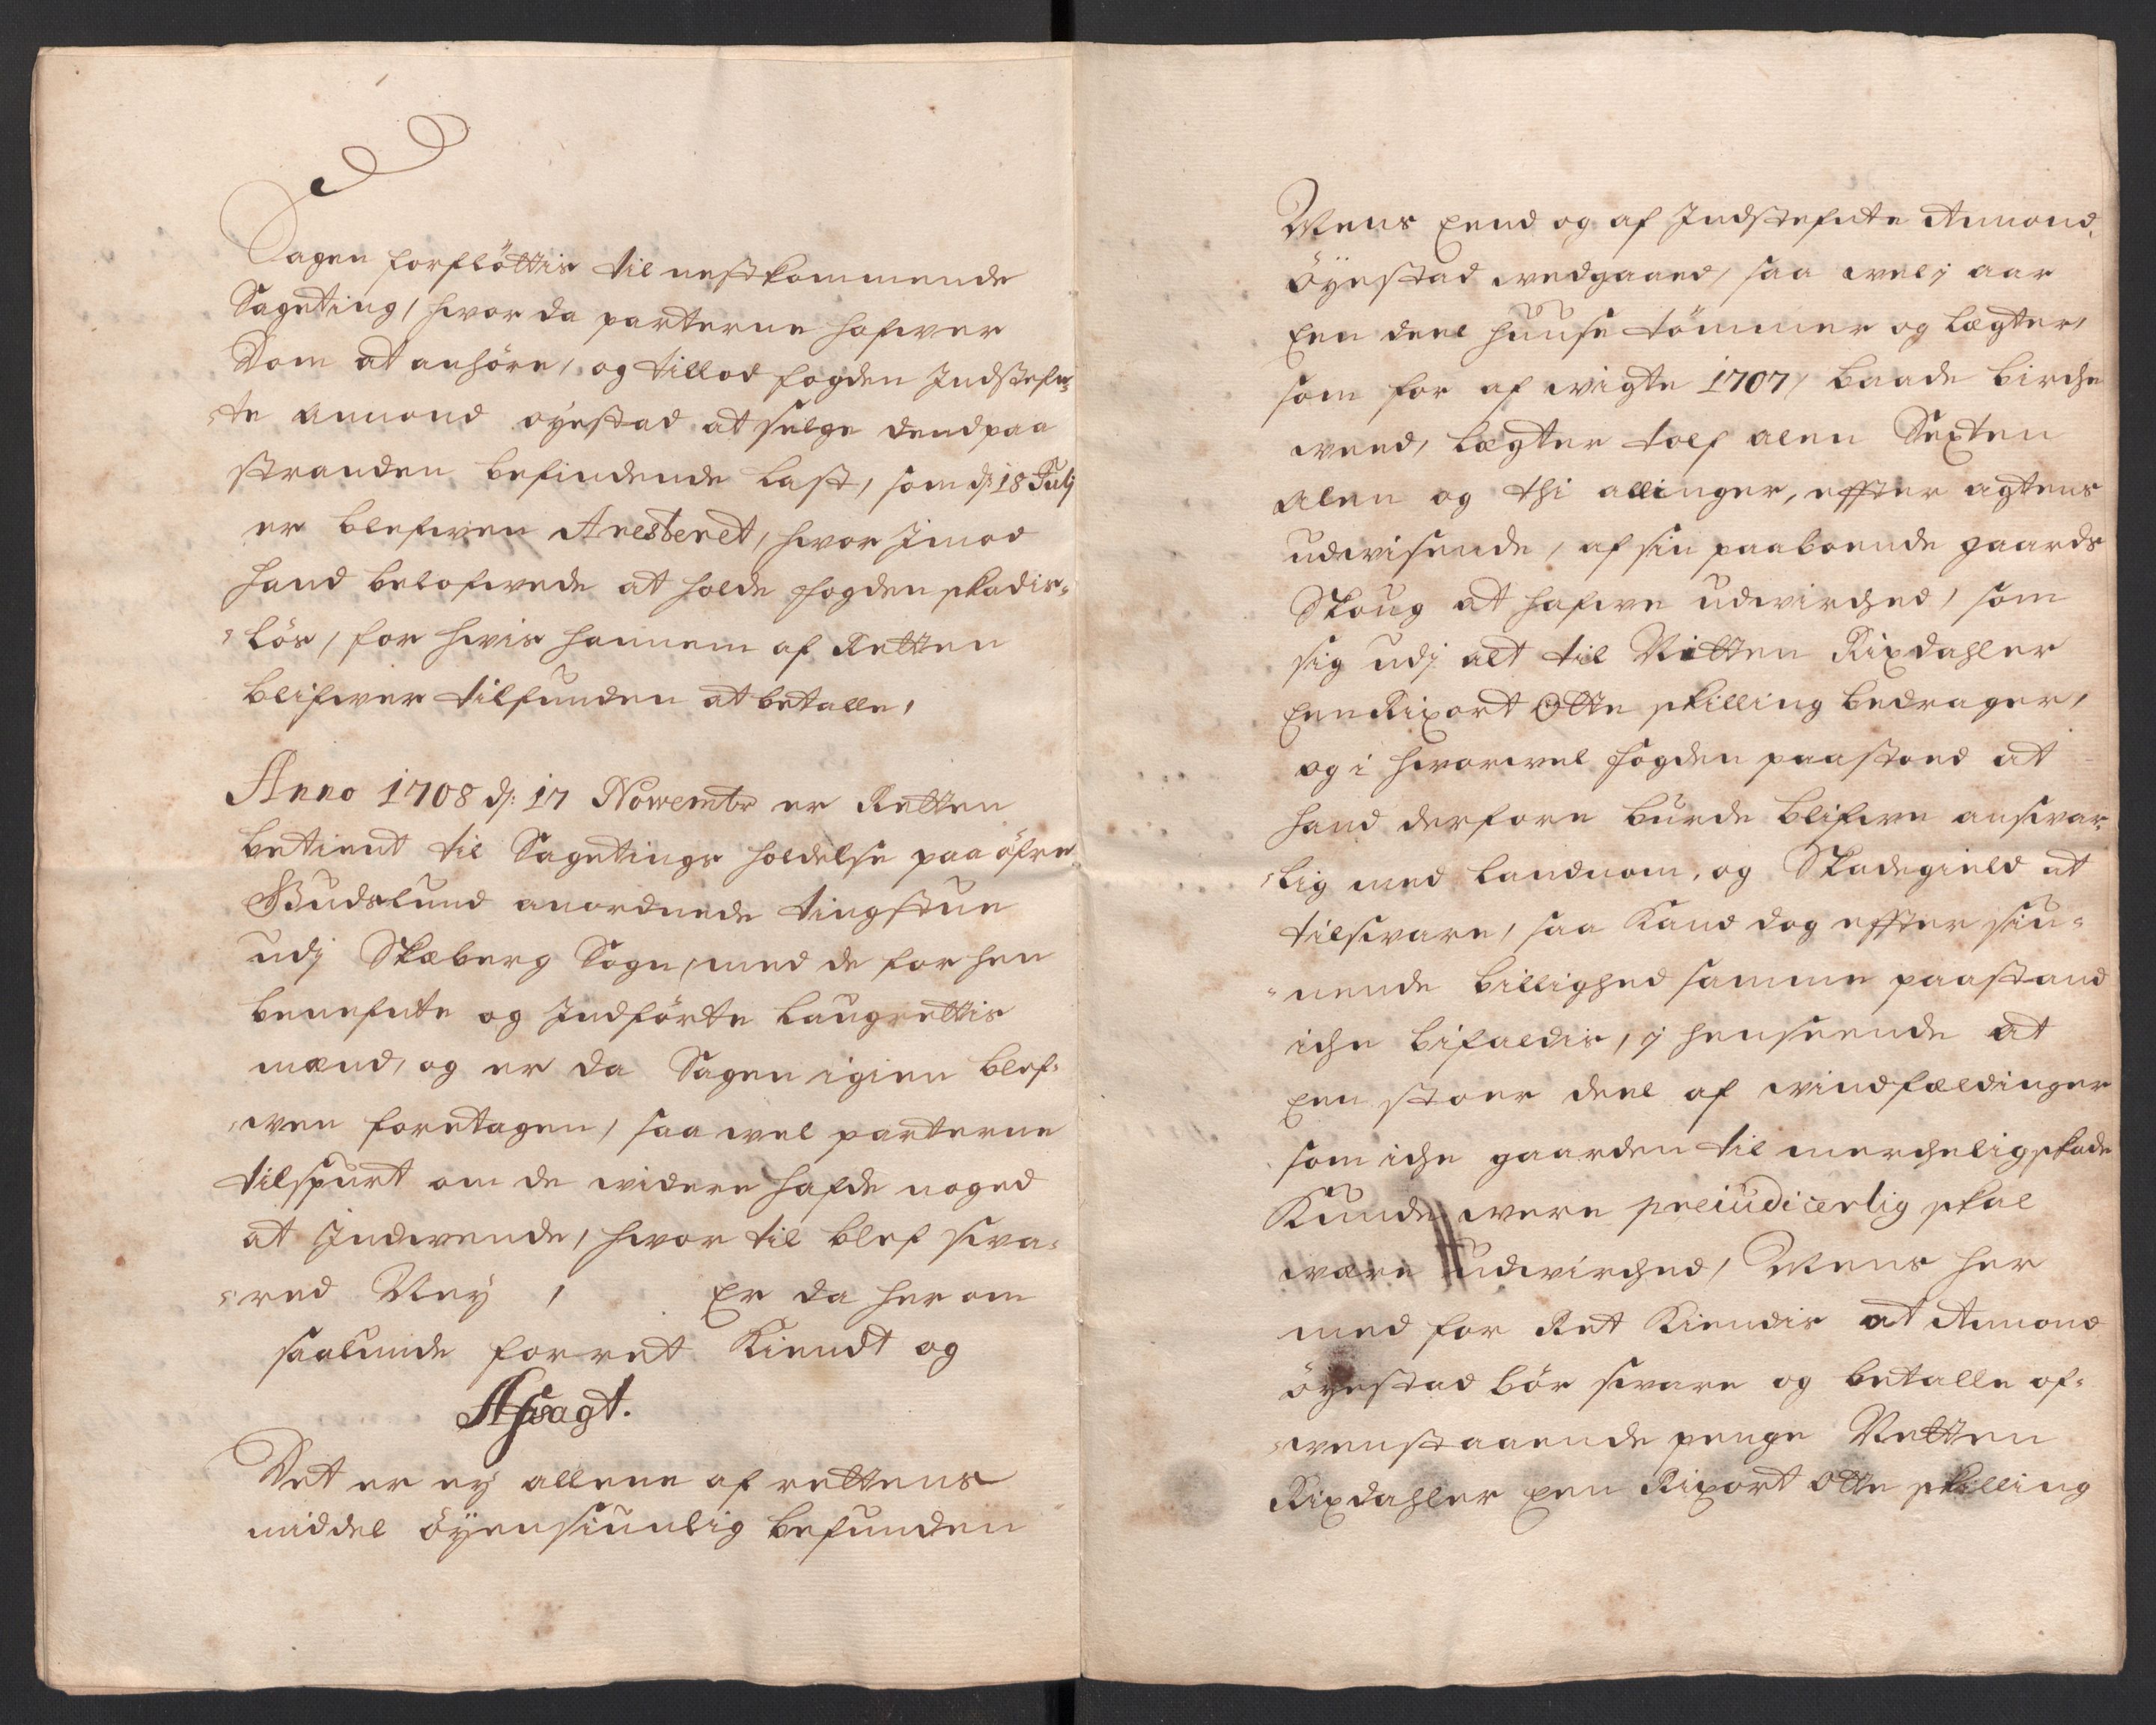 Sagen forflöttis til nestkommende
Sageting, hvor da parterne hafver
Dom at anhöre, og tillod fogden Indstefn-
-te Amond öyestad at selge dend paa
stranden befindende Last, som d: 18 Julj
er blefwen Aresteret, hvor Jmod
hand belofwede at holde fogden skadis-
-lös, for hvis hannem af Retten
blifwer tilfunden at betalle,
Anno 1708 d: 17 Novembr er Retten
betient til Sagetings holdelse paa öfre
Gudslund anordnede tingstue
udj Skæberg Sogn, med de for hen
benefnte og Indförte Laugrettis
mænd, og er da Sagen igien blef-
-wen foretagen, saa wel parterne
tilspurt om de widere hafde noged
at Indwende, hvor til blef swa-
-red Ney, Er da her om
saalunde for ret Kiendt og
Afsagt.
Det er ey allene af rettens
middel öyensiunlig befunden
Mens End og af Indstefnte Amond
Öyestad wedgaaed, saa wel j aar
Een deel huuse tömmer og Lægter,
som for af wigte 1707, baade birche
weed, Lægter tolf alen Sexten
alen og thi allinger, effter agtens
udwisende, af sin paaboende gaards
Skoug at hafwe udwirched, som
sig udj alt til Nitten Rixdahler
Een Rixort Otte skilling bedrager,
og i hvorwel fogden paastoed at
hand derfore burde blifwe answar-
-lig med Landnom, og Skadegield at
tilsvare, saa Kand dog effter siu-
-nende billighed samme paastand
iche bifaldis, j henseende at
Een stoer deel af windfældinger
som iche gaarden til mercheligskade
Kunde were preiudicerlig skal
være udwirched, Mens her
med for Ret Kiendis at Amond
öyestad bör sware og betalle of-
-wenstaaende penge Netten
Rixdahler Een Rixort Otte skilling